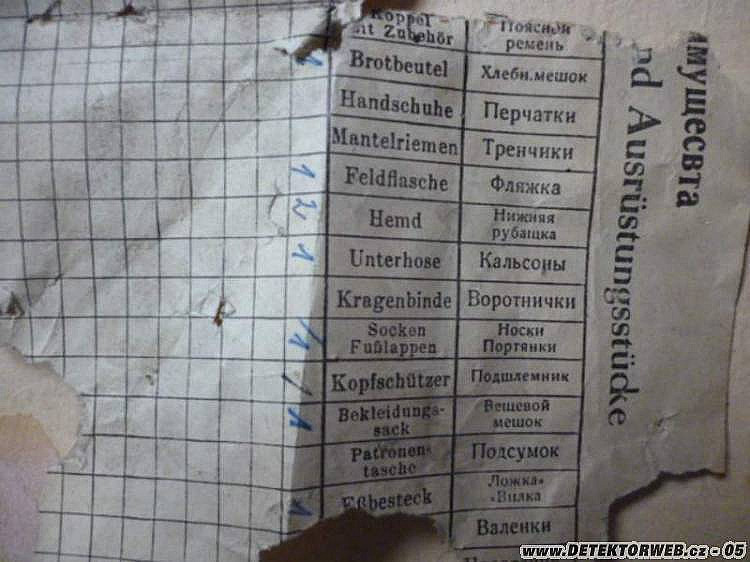 Koppel
mit Zubehör
Поясной
ремень
1
Brotbeutel
Хлебн. мешок
Handschuhe
Перчатки
Mantelriemen
Тренчики
1
Feldflasche
Фляжка
2
Hemd
Нижняя
рубашка
1
Unterhose
Кальсоны
Kragenbinde
Воротнички
1
Socken
Fußlappen
Носки
Портянки
Kopfschützer
Подшлемник
1
Bekleidungs-
sack
Вещевой
мешок
Patronen-
tasche
Подсумок
1
Eßbesteck
Ложка-
-Вилка
Валенки
имущесвта
nd Ausrüstungsstücke
www.DETEKTORWEB.cz - 05